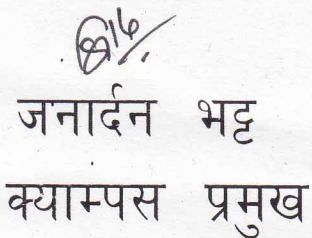 जनार्दन भट्ट
क्याम्पस प्रमुख